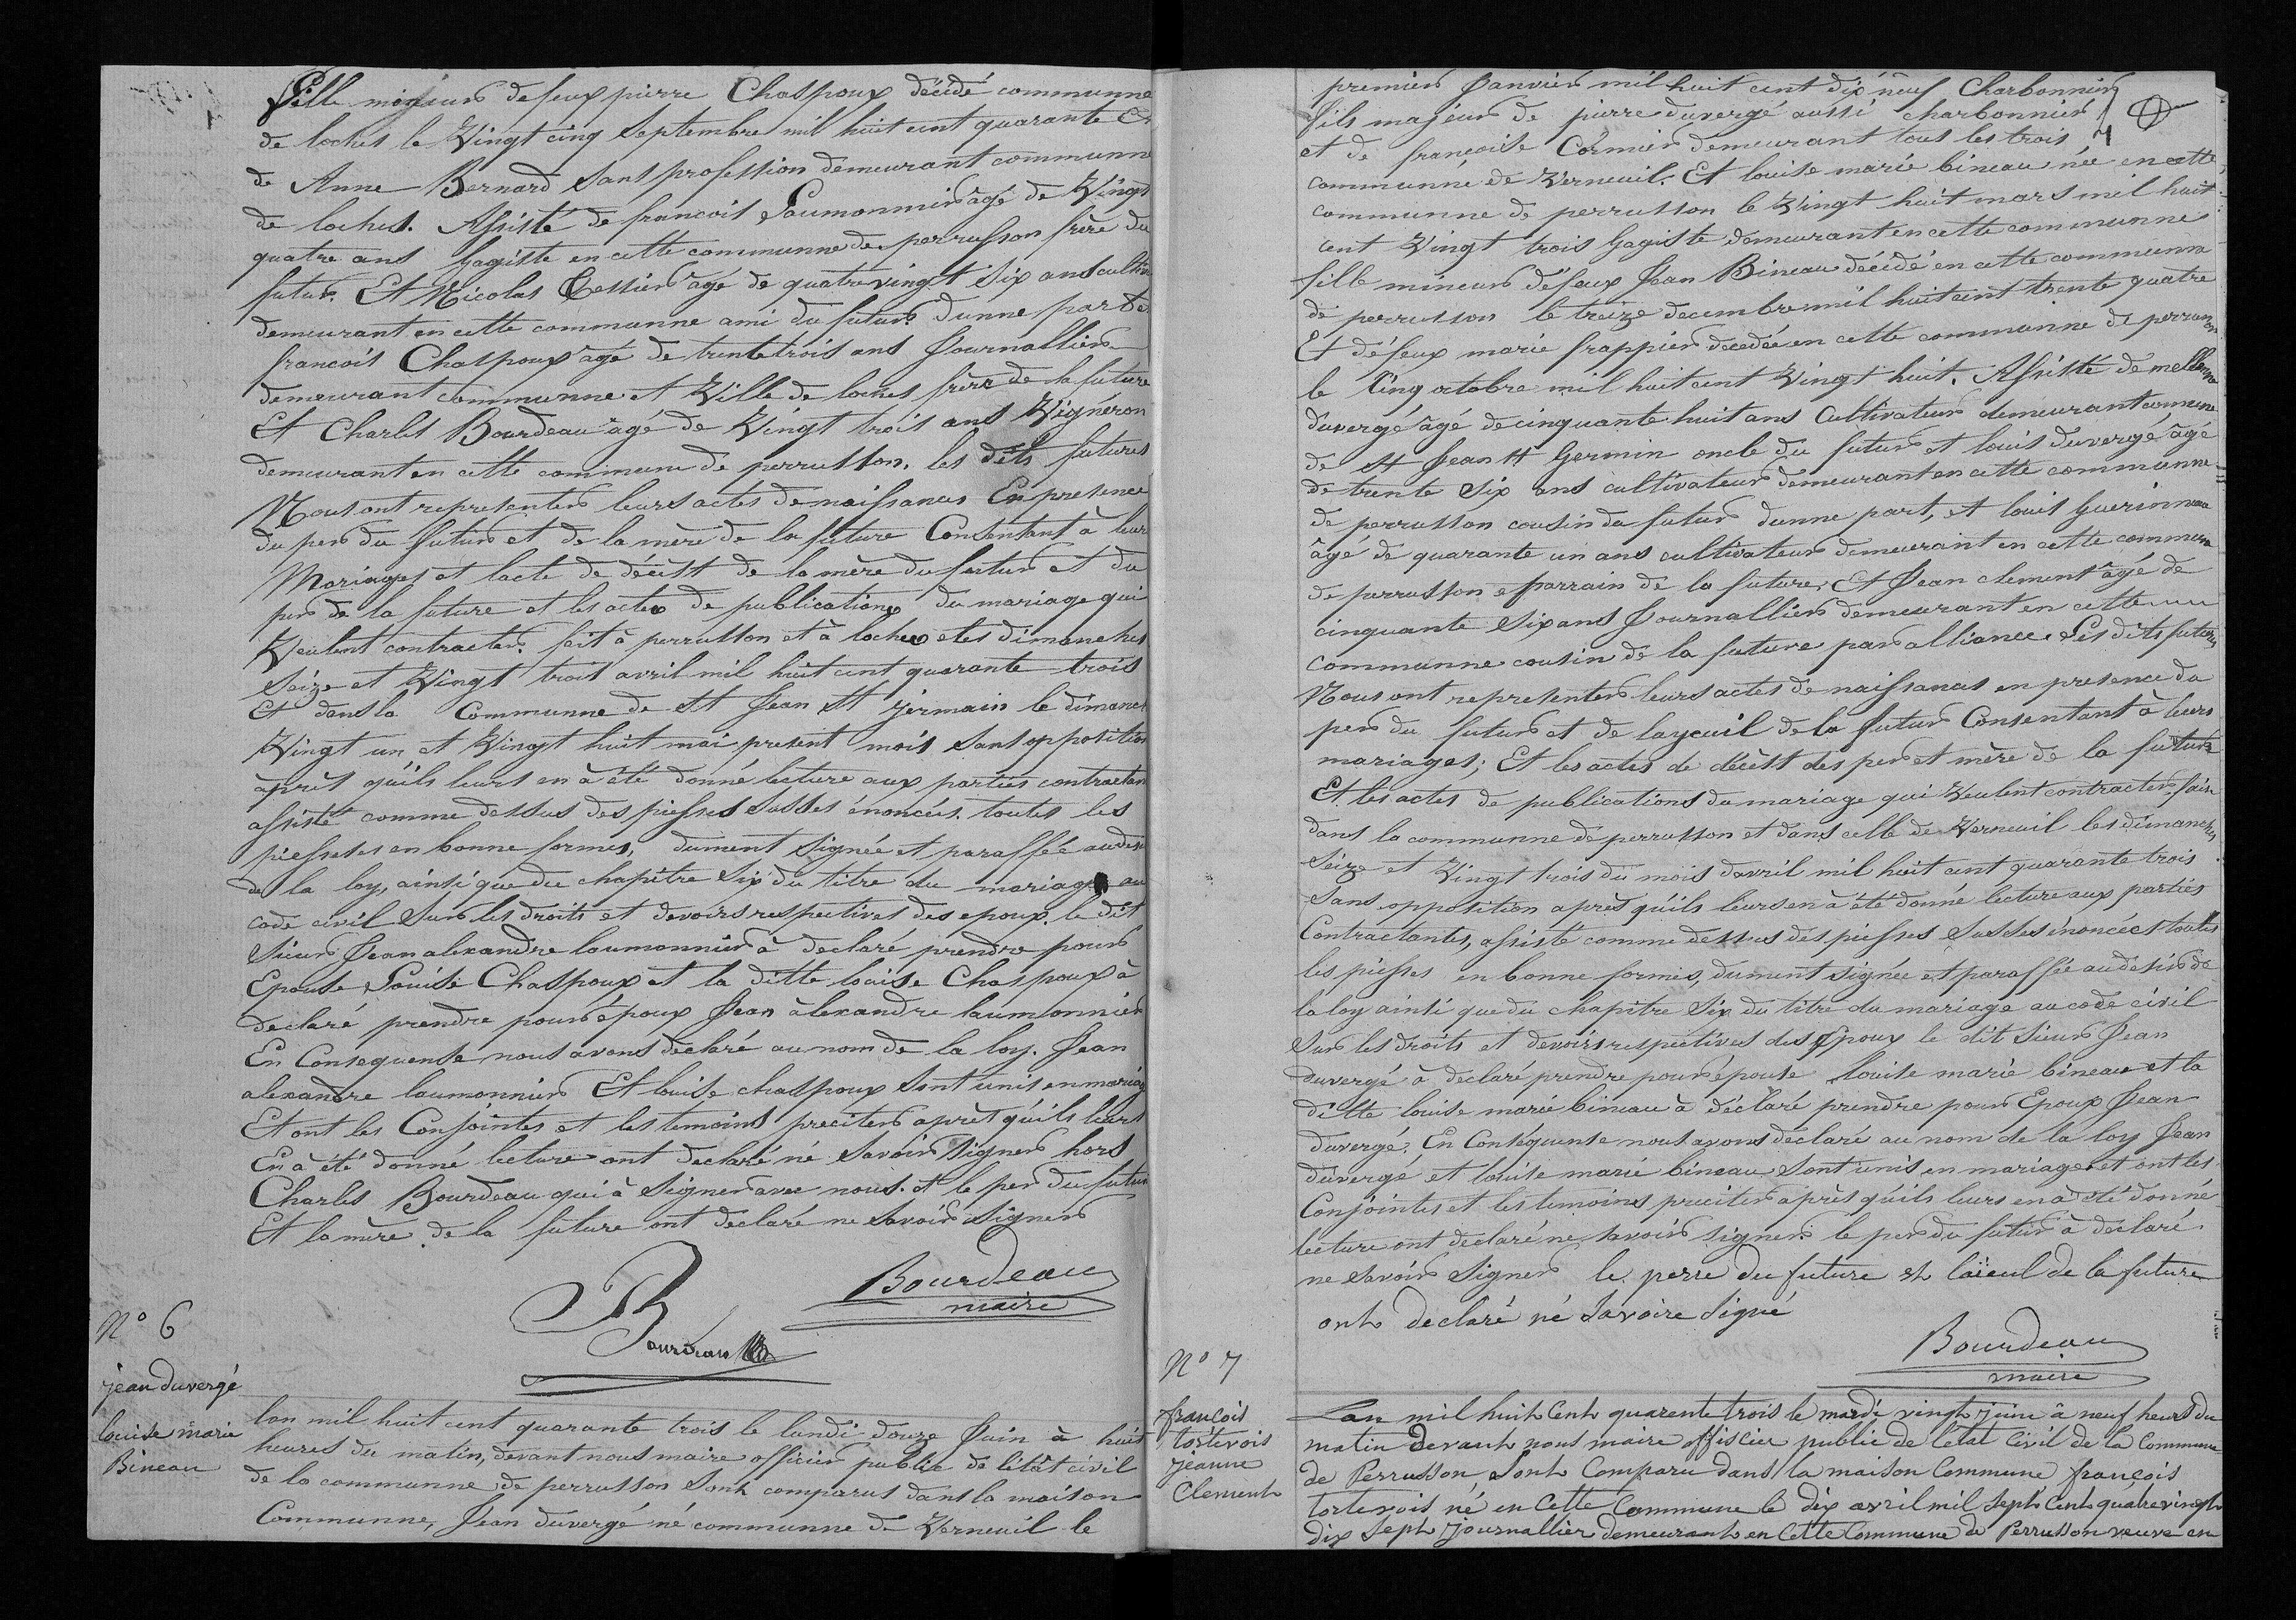 fille mineure de feux pierre Chaspoux décédé communne
de loches le Vingt cinq Septembre mil huit cent quarante Et
de Anne Bernard Sans profession demeurant communne
de loches. Assisté de francois Laumonnier âgé de Vingt
quatre ans Gagiste en cette communne de perrusson frère du
futur. Et Nicolas Tessier âgé de quatre vingt Six ans cultiv
demeurant en cette communne ami du futur dunne part Et
francois Chaspoux âgé de trente trois ans Journallier
demeurant communne et Ville de loches frère de la future
Et Charles Bourdeau âgé de Vingt trois ans Vigneron
demeurant en cette commune de perrusson. les dits futures
Nous ont representer leurs actes de naissances En presence
du per du futur et de la mère de la future Consentant à leur
Mariages et lacte de décest de la mère du futur et du
per de la future et les actes de publications du mariage qui
Veulent contracter. fait à perrusson et à loches les dimanches
Seize et Vingt trois avril mil huit cent quarante trois
Et dans la Communne de St Jean St Germain le dimanch
Vingt un et Vingt huit mai present mois Sans opposition
après quils leurs en à été donné lecture aux parties contractan
assisté comme dessus des piesses Susses énoncés. toutes les
piesses en bonne formes, dument Signée et paraffée au desir
de la loy, ainsi que du chapitre Six du titre du mariage au
code civil Sur les droits et devoirs respectives des epoux. le dit
Sieur Jean alexandre laumonnier à declaré prendre pour
Epouse Louise Chaspoux et la ditte louise Chaspoux à
declaré prendre pour époux Jean àlexandre laumonnier
En Consequense nous avons declaré au nom de la loy. Jean
alexandre laumonnier Et louise chaspoux Sont unis en mariag
Et ont les Conjointes et les temoins preciter après quils leurs
En à été donné lecture ont declaré né Savoir Signer hors
Charles Bourdeau qui à Signer avec nous. et le per du futur
Et la mère de la future ont declaré ne Savoir Signer
Bourdeau
maire
Bourdeau
N° 6
jean duvergé
louise marie
Bineau
lan mil huit cent quarante trois le lundi douze Juin à huit
heures du matin, devant nous maire officier public de létât civil
de la communne de perrusson Sont comparus dans la maison
Communne, Jean duvergé né communne de Verneuil le
premier Janvier mil huit cent dix neuf Charbonnier
fils majeur de pierre duvergé aussi charbonnier
et de françoise Cormier demeurant tous les trois
communne de Verneuil. Et louise marie bineau née en cette
communne de perrusson le Vingt huit mars mil huit
cent Vingt trois Gagiste demeurant en cette communne
fille mineur défeux Jean Bineau décédé en cette communne
de perrusson le treize decembre mil huit cent trente quatre
Et défeux marie frappier decedée en cette communne de perrusson
le Cinq octobre mil huit cent Vingt huit. Assisté de
duvergé âgé de cinquante huit ans Cultivateur demeurant commune
de St Jean St Germin oncle du futur et louis duvergé âgé
de trente Six ans cultivateur demeurant en cette communne
de perrusson cousin du futur dunne part, et louis Guerinneau
âgé de quarante un ans cultivateur demeurant en cette commune
de perrusson parrain de la future, Et Jean clement âgé de
cinquante Six ans Journallier demeurant en cette
communne cousin de la future par alliance. Les dits futurs
Nous ont representer leurs actes de naissances en presence du
per du futur et de layeuil de la futur Consentant à leurs
mariages; Et les actes de décest des per et mère de la future
Et les actes de publications du mariage qui Veulent contracter fait
dans la communne de perrusson et dans celle de Verneuil les dimanches
Seize et Vingt trois du mois davril mil huit cent quarante trois
Sans opposition après quils leurs en à été donné lecture aux parties
Contractantes, assisté comme dessus des piesses Susses énoncées toutes
les piesses en bonne formes, dument signée et paraffée au desir de
la loy ainsi que du chapitre Six du titre du mariage au code civil
Sur les droits et devoirs respectives des Epoux le dit Sieur Jean
duvergé à declaré prendre pour épouse louise marie bineau et la
ditte louise marie bineau à déclaré prendre pour Epoux Jean
duvergé. En Conséquense nous avons déclaré au nom de la loy Jean
duvergé et louise marie bineau Sont unis en mariages et ont les
Conjointes et les temoins preciter après quils leurs en à été donné
lecture ont declaré ne savoir signer. le per du futur à declaré
ne Savoir Signer le perre du future et làieul de la future
ont declaré né Savoire Signé
Bourdeau
maire
N° 7
françois
tortevois
jeanne
Clement
Lan mil huit Cent quarente trois le mardi vingt juin à neuf heurs du
matin devant nous maire offiscier public de létat Civil de la Commune
de Perrusson Sont Comparu dans la maison Commune françois
tortevois né en Cette Commune le dix avril mil Sept Cent quatre vingt
dix Sept journallier demeurant en Cette Commune de Perrusson veuve en